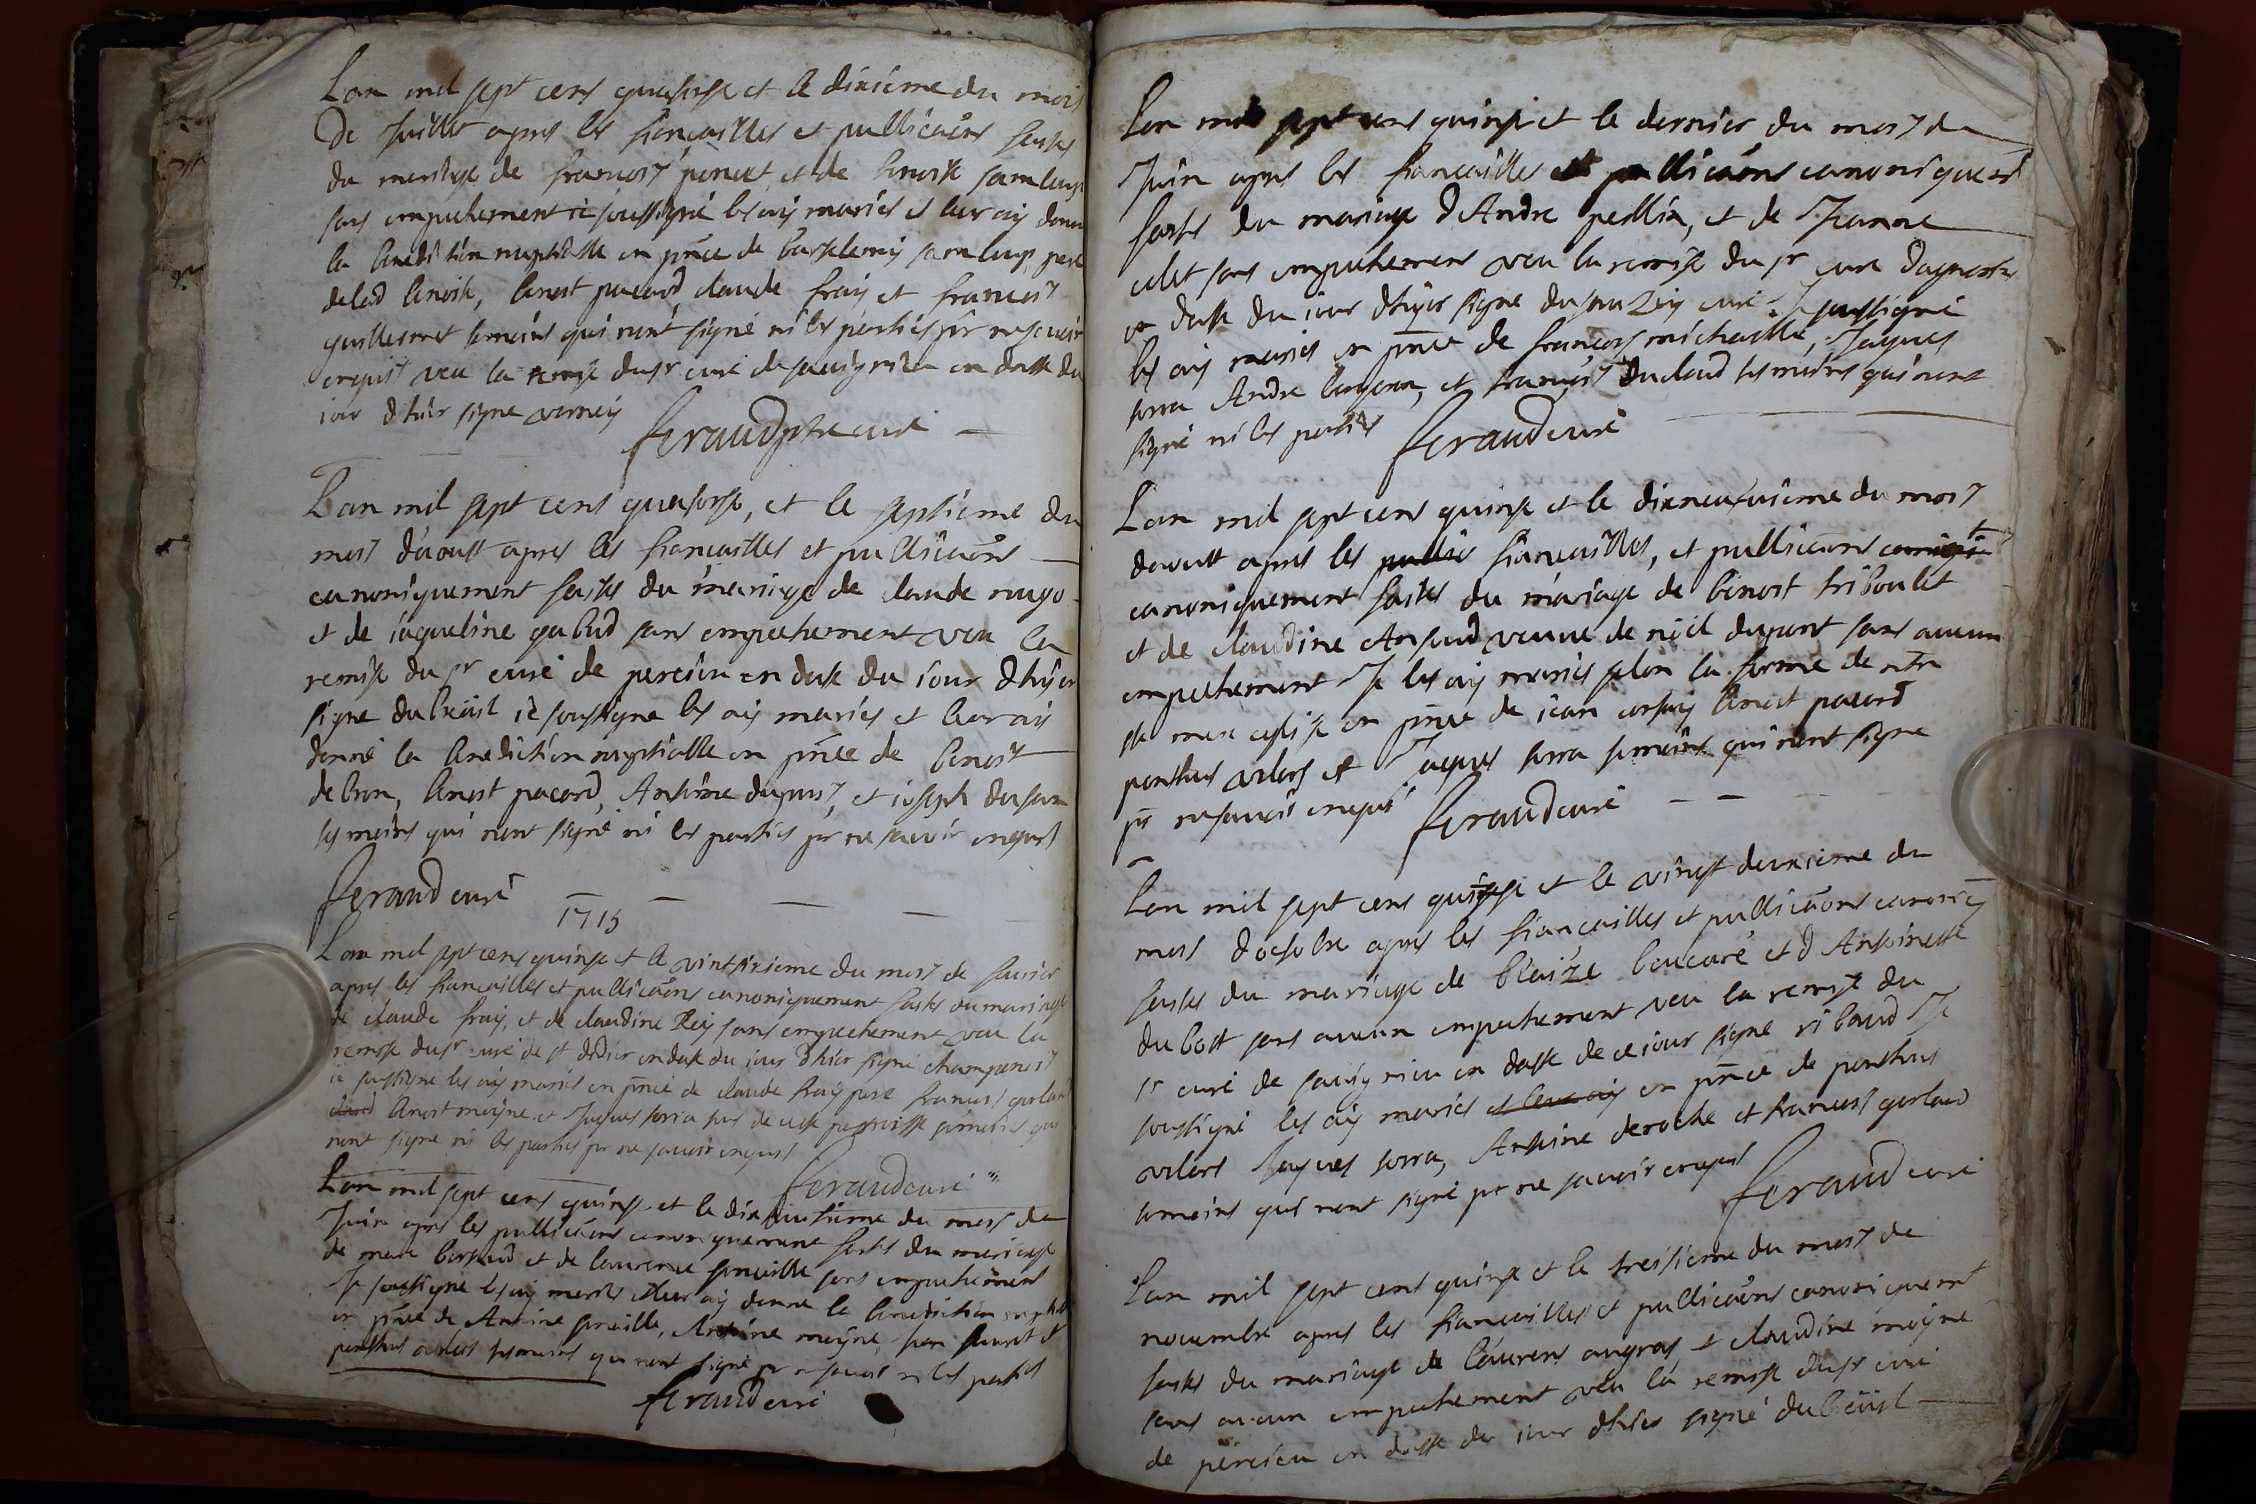 Lan mil sept cens quatorse et le dixieme du mois
de Juillet apres les fiancailles et publicaons faites
du mariage de francois poncet, et de benoite samloup
sans empechement ie soussigné les ay mariés et leur ay donné
la benediction nuptialle en pnce de barthelemy samloup pere
de lad benoite, benoit pacard, claude frais et francois
guillermet temoins qui nont signé ni les parties pr ne scavoir
enquis veu la remise du sr curé de savignieu en datte du
iour dhier signe verney
feraud ptre curé
Lan mil sept cens quatorse, et le septieme du
mois daoust apres les fiancailles et publicaons
canoniquement faites du mariage de claude nugo
et de iaqueline gabud sans empechement veu la
remise du sr curé de percieu en date du iour dhyer
signe dubreüil ie soussigne les ay mariés et leur ay
donné la benediction nuptialle en pnce de benoit
debron, benoit pacard, Antoine dupuis, et ioseph dufour
temoins qui nont signé ni les parties pr ne scavoir enquis
feraud curé
1715
Lan mil sept cens quinse et le vintsixieme du mois de fevrier
apres les fiancailles et publicaons canoniquement faites du mariage
de claude frais, et de claudine Rey sans empechement veu la
remise du sr curé de st didier en date du iour dhier signé champenois
ie soussigne les ay mariés en pnce de claude frais pere francois garland
benoit moyne et Jaques sorra tous de cette parroisse temoins qui
nont signe ni les parties pr ne scavoir enquis
feraud curé
Lan mil sept cens quinse et le dix huitieme du mois de
Juin apres les publicaons canoniquement faites du mariage
de marc bersaud et de laurence ponceille sans empechement
Je soussigne les ay mariés et leur ay donne la benediction nuptialle
en pnce de Antoine ponceille, Antoine moyne, et
ponthus velars temoins qui nont signé pr ne scavoir ni les parties
feraud curé
Lan mil sept cens quinse et le dernier du mois de
Juin apres les fiancailles et publicaons canoniquemt
faites du mariage dAndre peillin, et de Jeanne
colet sans empechement veu la remise du sr curé
en date du iour dhyer signe curé Je soussigné
les ay mariés en pnce de francois michallet, Jaques
sorra Andre bugenon, et francois duclaud temoins qui nont
signé ni les parties
feraud curé
Lan mil sept cens quinse et le dixneufvieme du mois
daoust apres les fiancailles, et publicaons
canoniquement faites du mariage de benoit triboulet
et de claudine Ansaud veuve de noël dupont sans aucun
empechement Je les ay mariés selon la forme de ntre
ste mere eglise en pnce de iean benoit pacard
ponthus velars et Jaques sorra temoins qui nont signe
pr ne scavoir enquis
feraud curé
Lan mil sept cens quinse et le vingt deuxieme du
mois doctobre apres les fiancailles et publicaons canoniq
faites du mariage de blaize boucaré et d Antoinette
dubost sans aucun empechement veu la remise du
sr curé de savignieu en datte de ce iour signe ribaud Je
soussigné les ay mariés et leur ay en pnce de ponthus
velars Jaques sorra, Antoine deroche et francois garland
temoins qui nont signé pr ne scavoir enquis
feraud curé
Lan mil sept cens quinse et le treisieme du mois de
novembre apres les fiancailles et publicaons canoniquemt
faites du mariage de laurens augros et claudine moyne
sans aucun empechement veu la remise du sr curé
de percieu en datte du iour dhier signé dubreüil